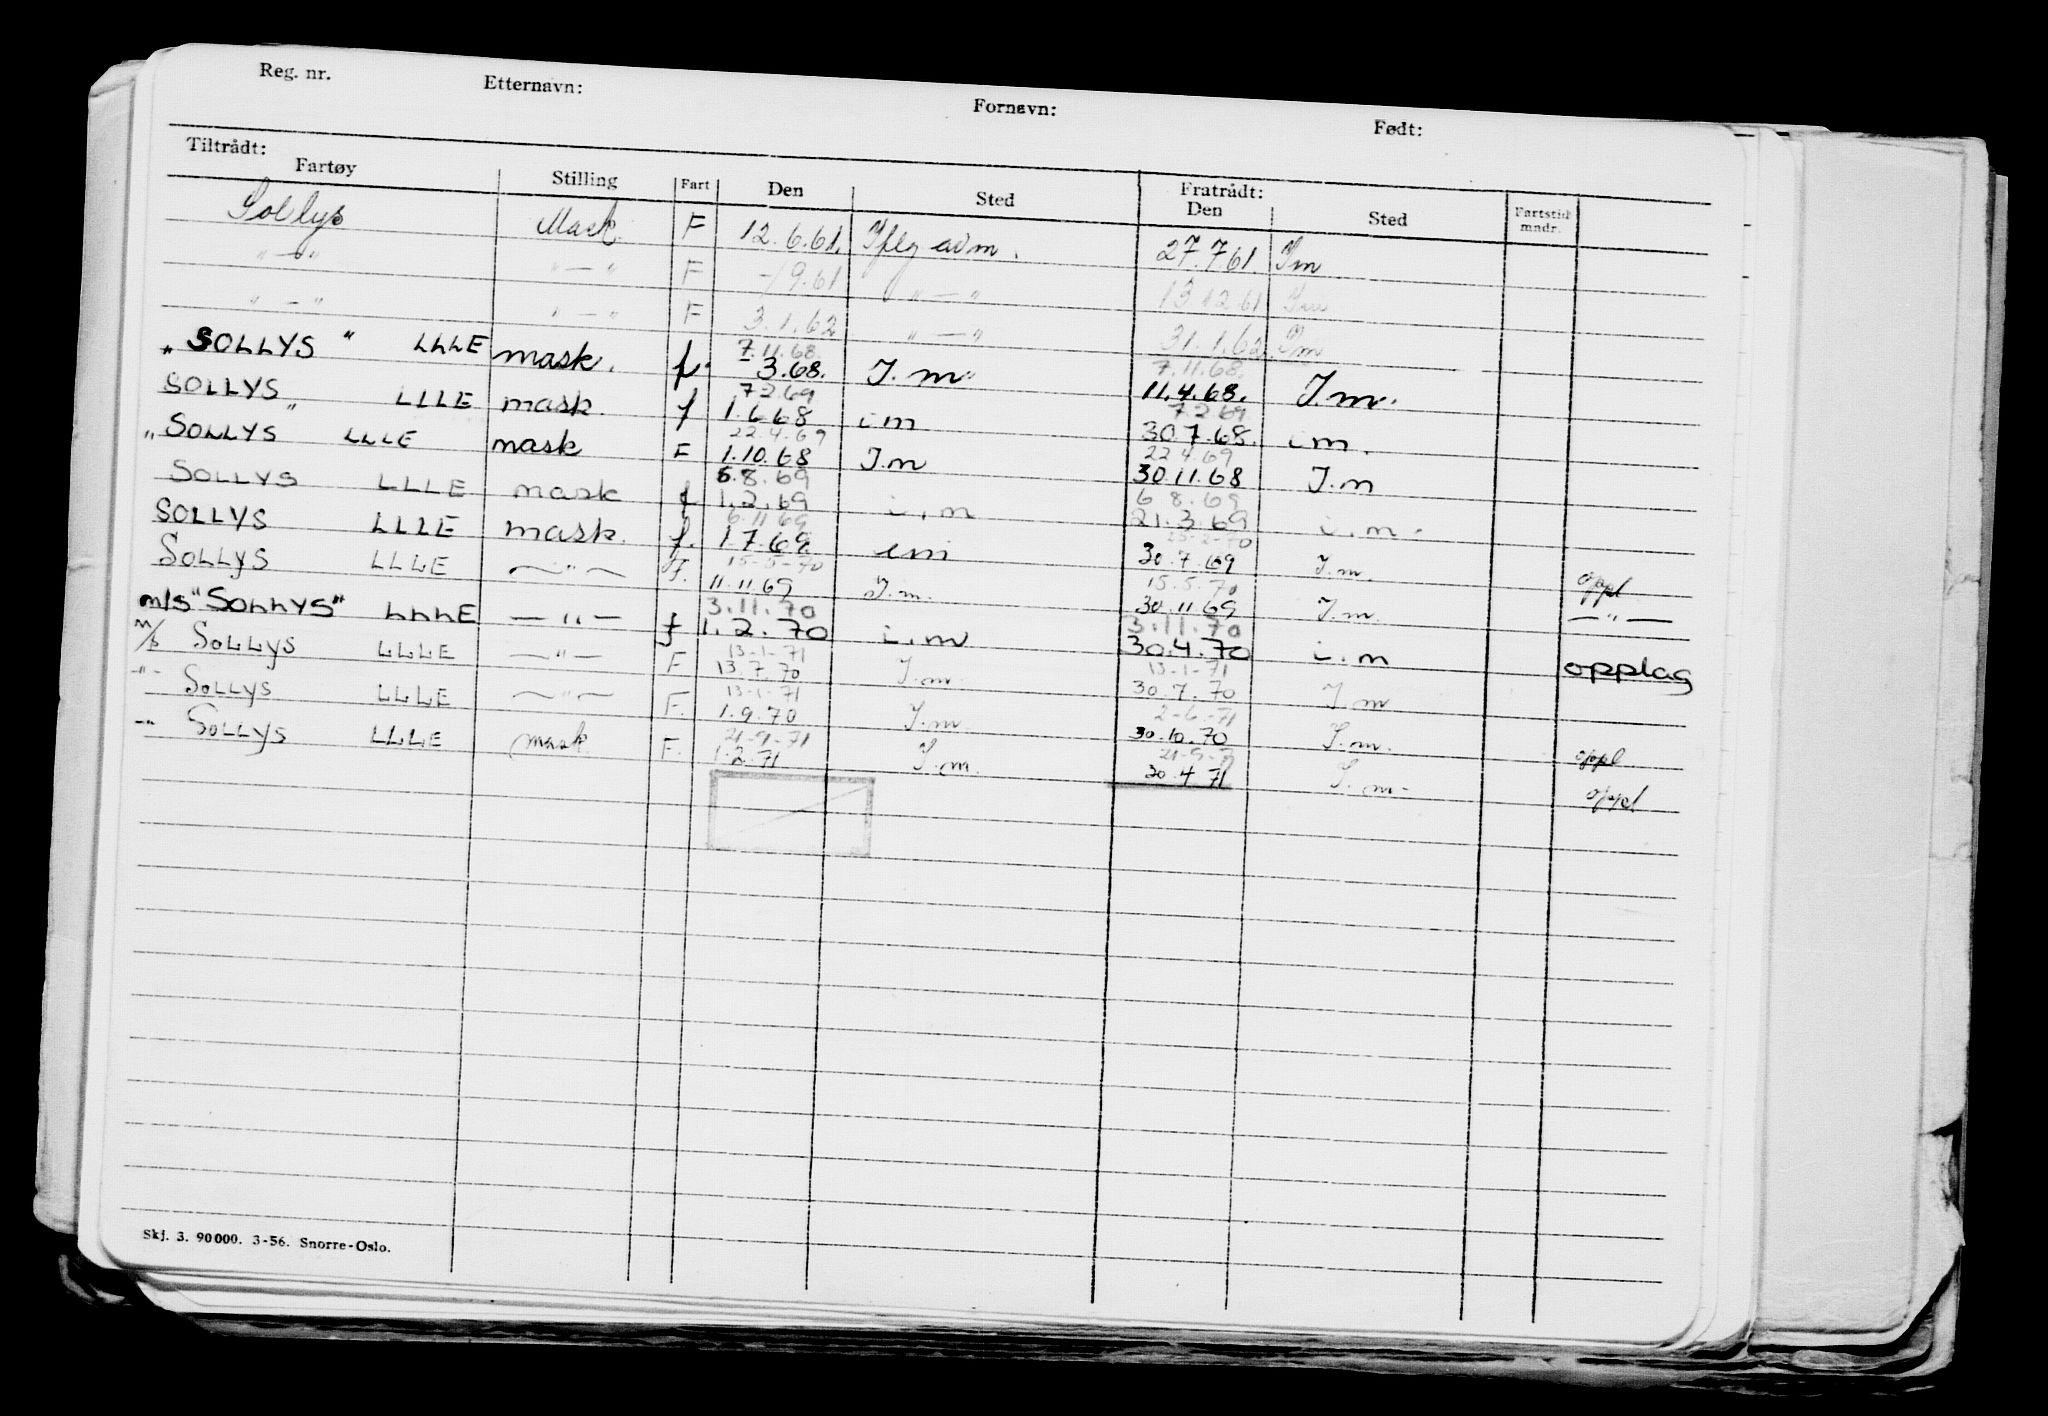 Reg. nr. Etternavn: Fornavn: Født:
Tiltrådt: Fratrådt:
Fartøy Stilling Fart Den Sted Den Sted Fartstid mndr.
Sollys Mask. F 12.6.61. Iflg adm. 27.7 61. Im
"—" "—" F -/9.61 "—" 13.12.61 Im
"—" "—" F 3.1.62 "—" 31.1.62. Im
7.11.68. 7.11.68.
"SOLLYS" LLLE mask. f. -3.68. I.m. 11.4.68. I.m.
7.2.69 7.2.69
SOLLYS LLLE mask. f 1.6.68 i m 30.7.68. i m.
22.4.69 22.4.69
"SOLLYS" LLLE mask F 1.10.68 I.m 30.11.68 I.m
6.8.69 6.8.69
SOLLYS LLLE mask f 1.2.69 i.m 21.3.69 i.m.
6.11.69 25-2-70
SOLLYS LLLE mask. f. 1.7.69. i m 30.7.69 I.m.
15-5-70 15.5.70
SOLLYS LLLE —"— F. 11.11.69 I.m. 30.11.69 I.m. oppl
3.11.70 3.11.70
m/s "SOLLYS" LLLE —"— f 1.2.70 i.m 30.4.70 i.m —"—
13-1-71 13-1-71
m/s SOLLYS LLLE —"— F 13.7.70 I.m. 30.7.70 I.m opplag
13-1-71 2-6-71
-"- SOLLYS LLLE —"— F. 1.9.70 I.m. 30.10.70 I.m. oppl
21-9-71 21-9-71
-"- SOLLYS LLLE mask. F. 1.2.71 I.m. 30.4 71 I.m. oppl
Skj. 3. 90000. 3-56. Snorre-Oslo.